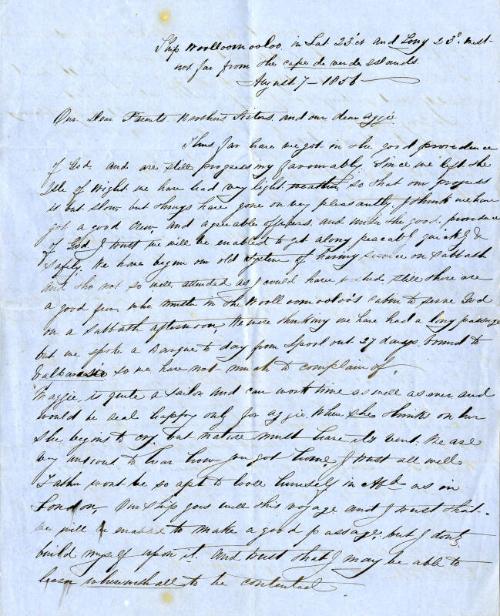 Ship Woolloomooloo in Lat 23°N and Long 23° West
not far from the cape de verde islands
August 7 - 1856
Our Dear Parents Brothers Sisters and our dear Aggie
Thus far have we got in the good providence
of God and are still progressing favourably. Since we left the
Isle of Wight we have had very light so that our progress
is but slow but things have gone on very pleasantly, I think we have
got a good crew and agreeable officers, and with the good providence
of God I trust we will be enabled to get along peaceably quickly &
safely. We have begun our old system of having service on Sabbath
but tho not so well attended as I could have wished still there are
a good few who meet in the Woolloomooloo's cabin to serve God
on a Sabbath afternoon, We were thinking we have had a long passage
but we spoke a Barque to day from pool out 27 days bound to
so we have not much to complain of.
Maggie is quite a sailor and can work time as well as ever and
would be real happy only for aggie when she thinks on her
she begins to cry, but nature must have its vent. We are
very anxious to hear how you got home, I trust all well
Father wont be so apt to lose himself in as in
London, Our ship goes well this voyage and I trust that
we will be enabled to make a good passage, but I dont
build myself upon it. And trust that I may be able to
learn all to be contented.